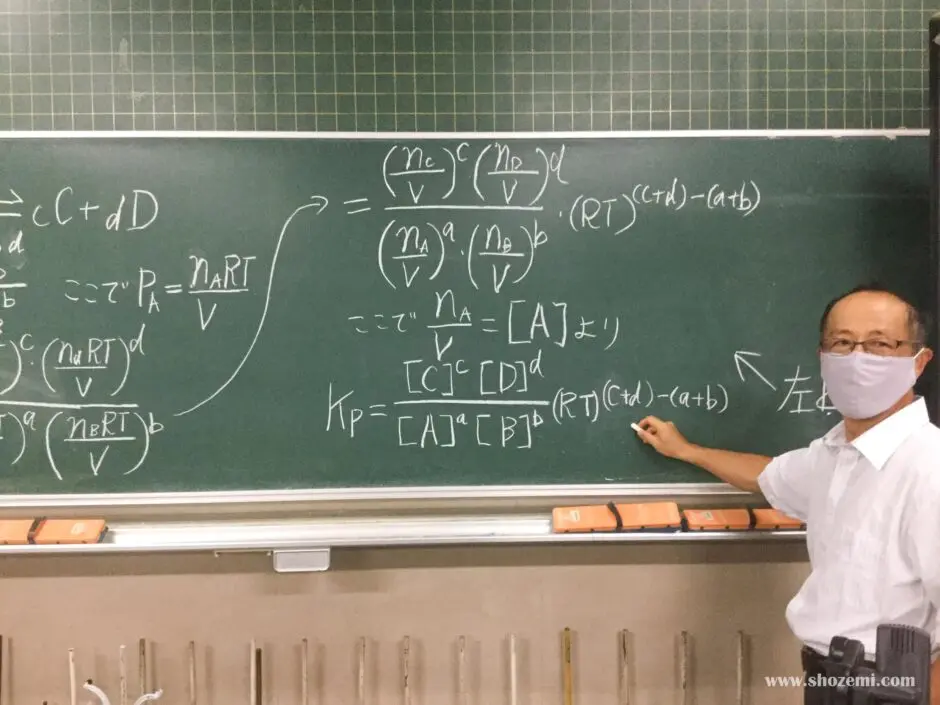 ⇌ cC + dD
ここで P_A = n_A RT / V
)^c · (n_d RT / V)^d
)^a (n_B RT / V)^b
= (n_C / V)^c (n_D / V)^d / (n_A / V)^a · (n_B / V)^b · (RT)^(c+d)-(a+b)
ここで n_A / V = [A] より
K_P = [C]^c [D]^d / [A]^a [B]^b (RT)^(c+d)-(a+b)
左
www.shozemi.com